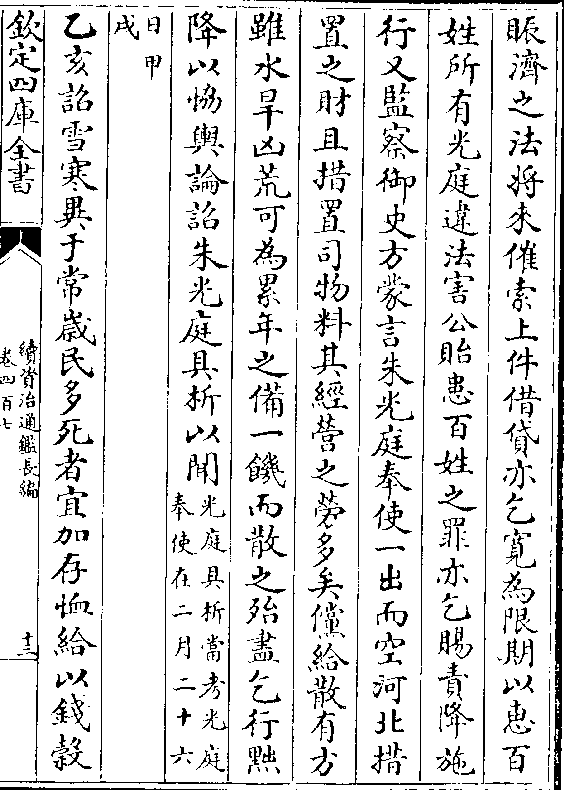 賑濟之法將來催索上件借貸亦乞寛為限期以惠百
姓所有光庭違法害公貽患百姓之罪亦乞賜責降施
行又監察御史方蒙言朱光庭奉使一出而空河北措
置之財且措置司物料其經營之勞多矣儻給散有方
雖水旱凶荒可為累年之備一饑而散之殆盡乞行黜
降以恊輿論詔朱光庭具析以聞光庭具析當考光庭
奉使在二月二十六
日甲
戌
乙亥詔雪寒異于常嵗民多死者宜加存恤給以錢穀
欽定四庫全書
續資治通鑑長編
卷四百七
十三